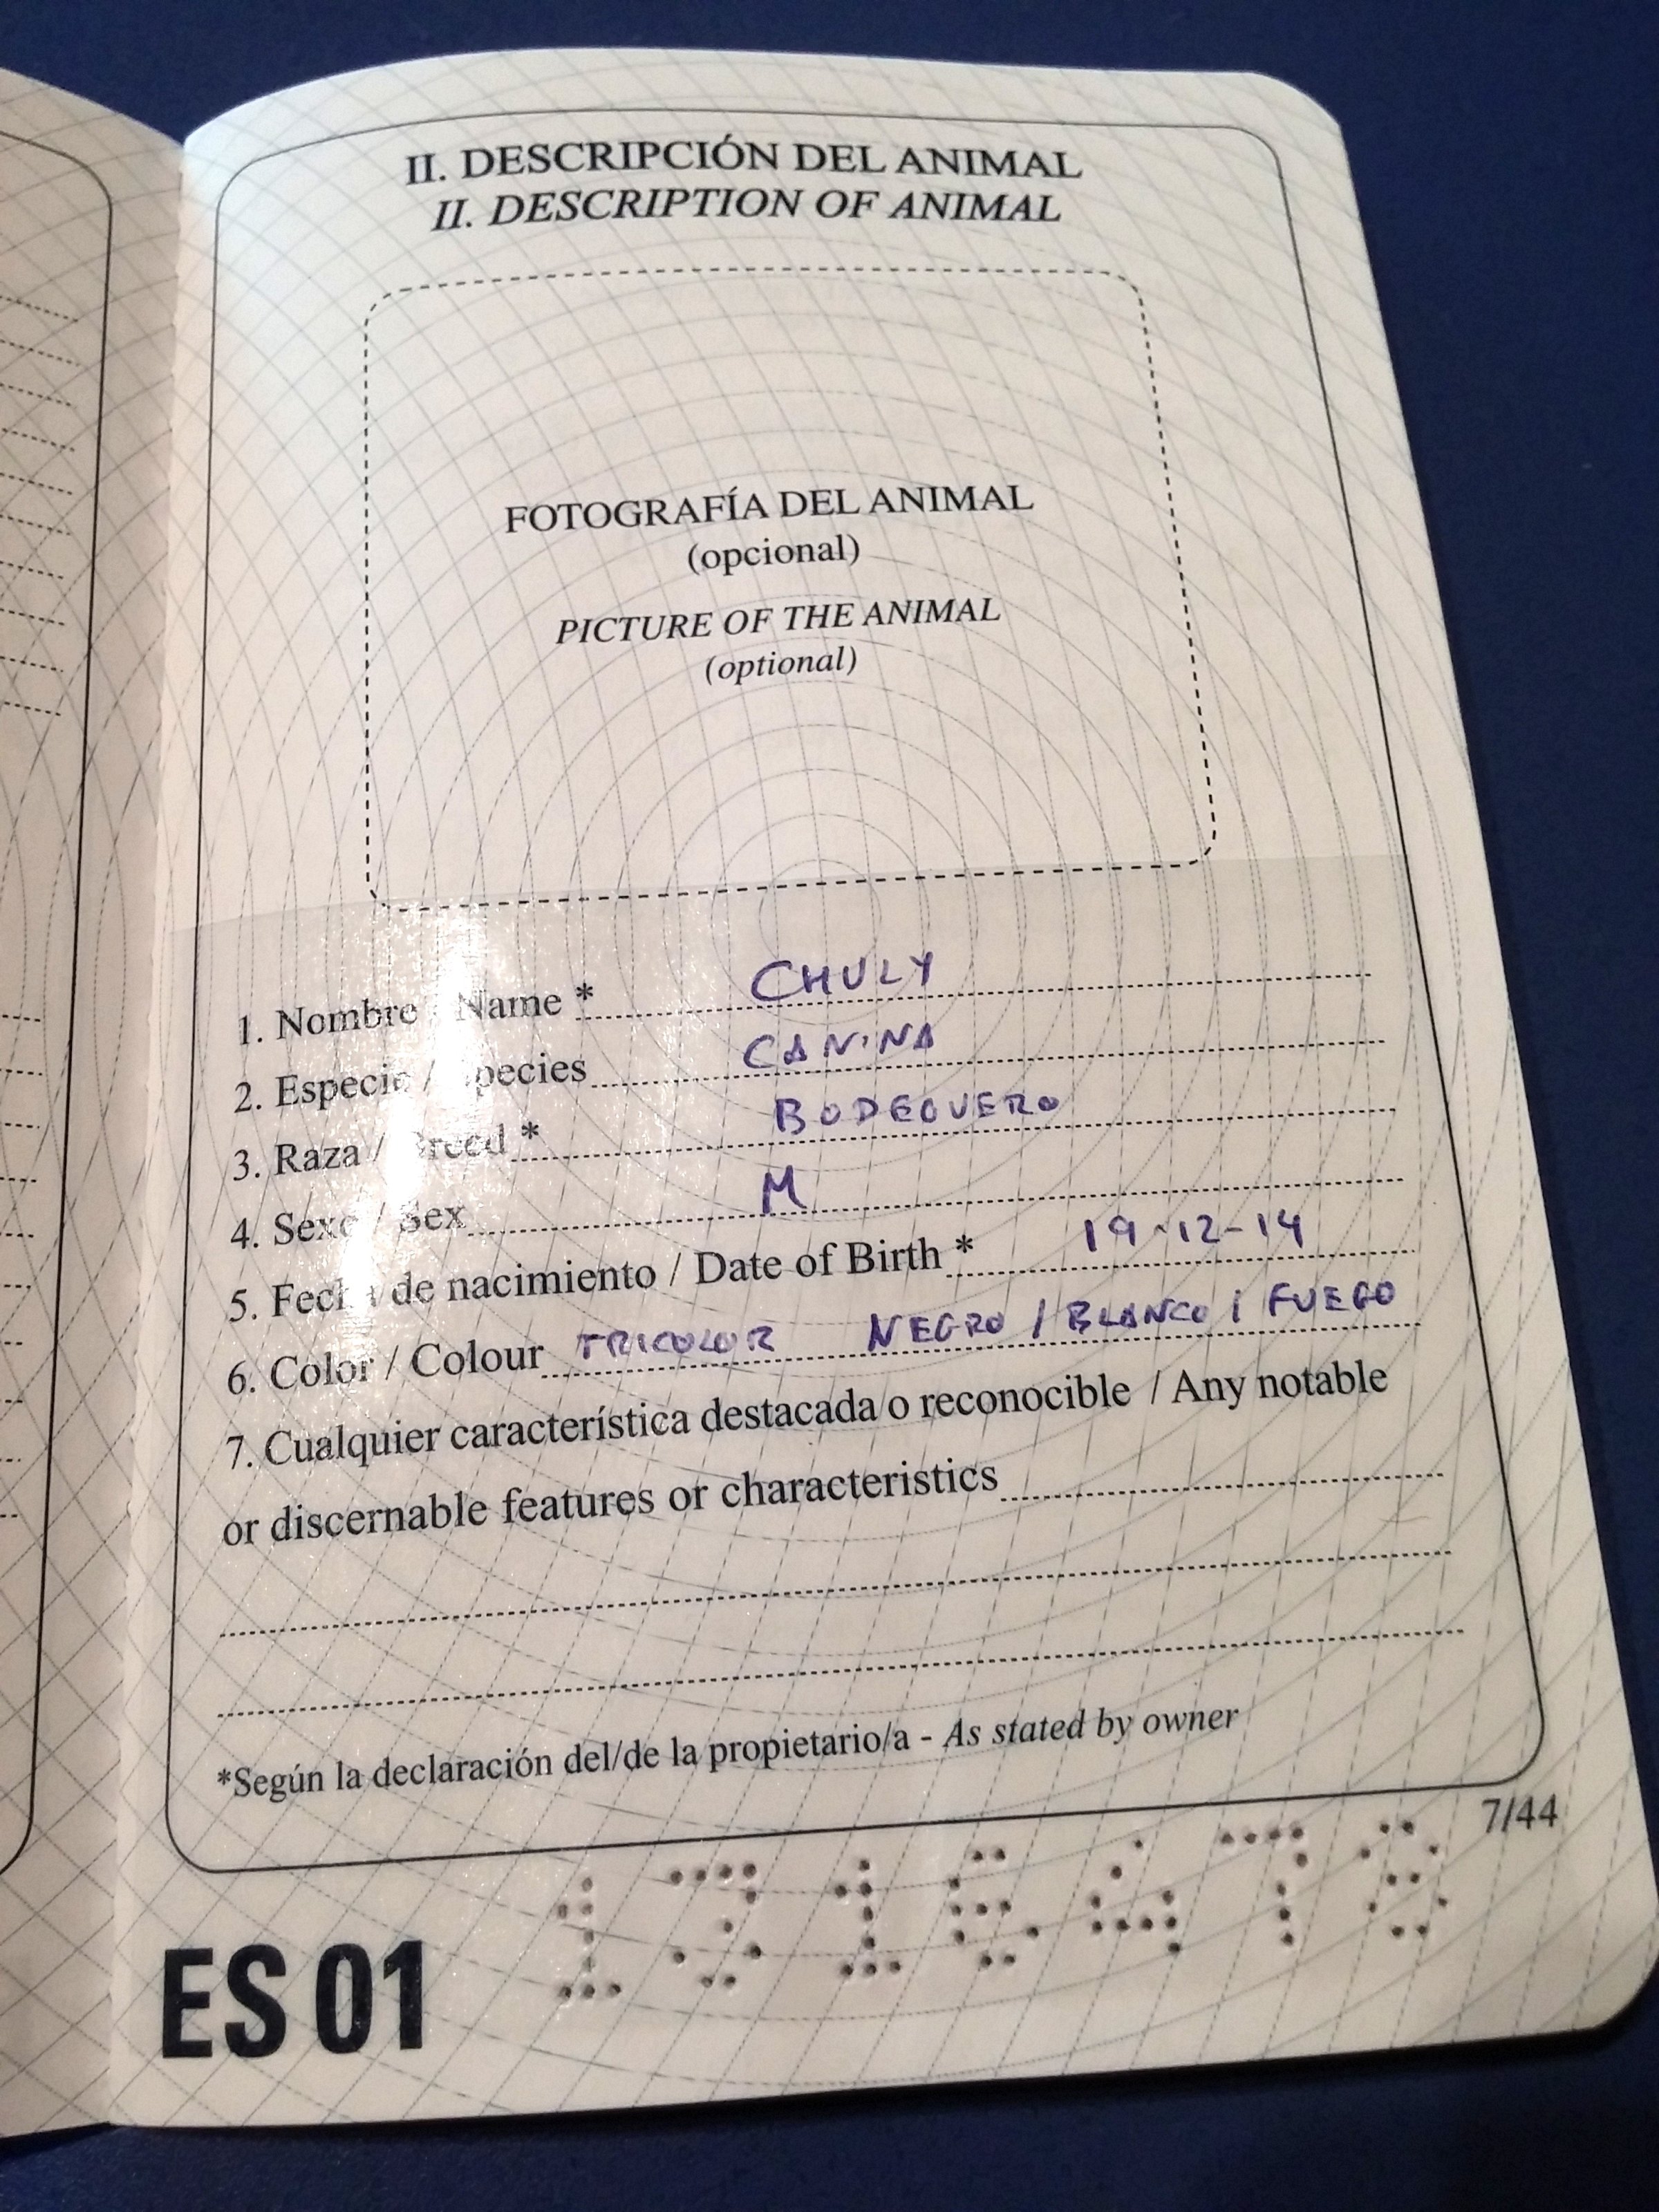 II. DESCRIPCIÓN DEL ANIMAL
II. DESCRIPTION OF ANIMAL
FOTOGRAFÍA DEL ANIMAL
(opcional)
PICTURE OF THE ANIMAL
(optional)
1. Nombre / Name * CHULY
2. Especie / Species CANINA
3. Raza / Breed * BODEGUERO
4. Sexo / Sex M
5. Fecha de nacimiento / Date of Birth * 19-12-14
6. Color / Colour TRICOLOR NEGRO / BLANCO / FUEGO
7. Cualquier característica destacada o reconocible / Any notable
or discernable features or characteristics
*Según la declaración del/de la propietario/a - As stated by owner
7/44
ES 01 1316478